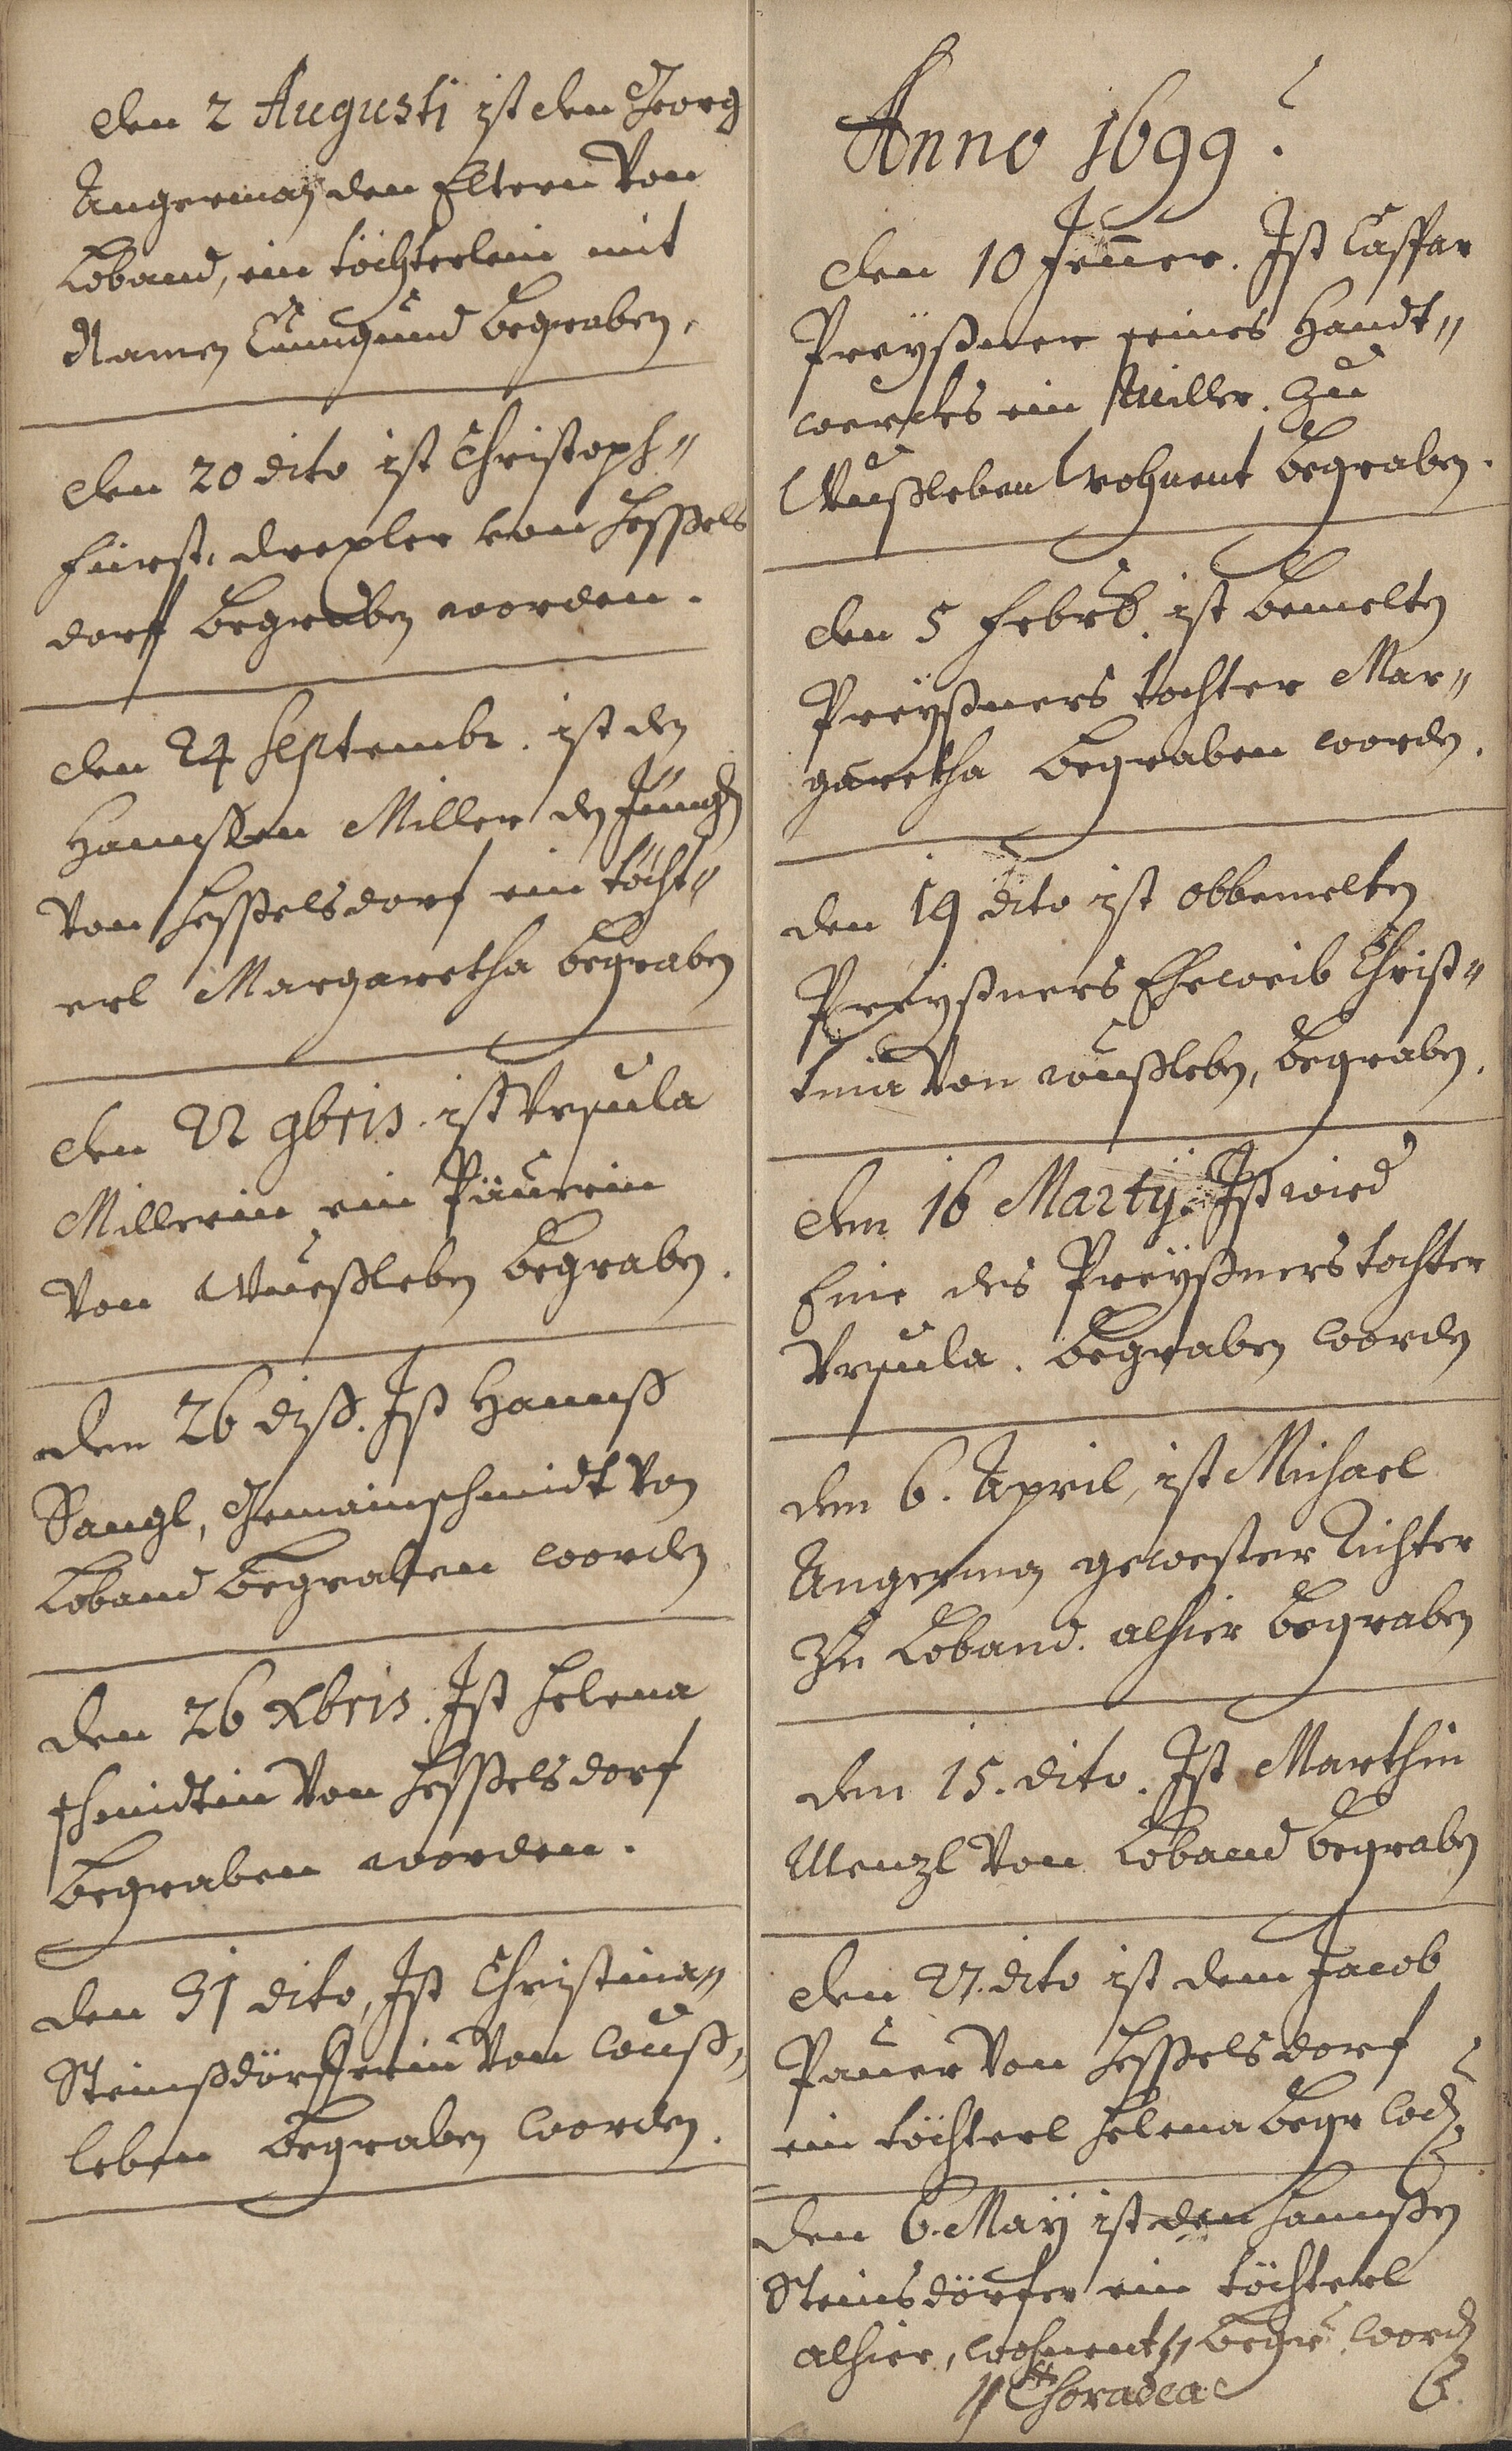 den 2 Augusti ist den Georg
Angerman den Eltern von
Loband, ein töchterlein mit
Namen Cunigund begraben,
den 20 dito ist Christoph"
fürst, drexler von Hesßels
dorff begraben worden.
den 24 Septembr. ist den
Hannsßen Miller den Jung
von Hesßelsdorf ein töcht"
erl Margaretha begraben
den 22 9bris. ist Ursula
Millerin ein Päurin
von Wusßleben begraben.
den 26 diß. Ist Hannß
Sangl, Gemainschmidt von
Loband begraben worden
den 26 Xbris. Ist Helena
schmidtin von Hesßelsdorf
begraben worden.
den 31 dito, Ist Christina"
Steinßdörfferin von Wuß,
leben begraben worden.
Anno 1699.
den 10 Jenner. Ist Casspar
Preyßner seines Handt"
werckes ein Miller. zu
Wußleben wohnent begraben.
den 5 Febrb. ist bemelten
Preyßners tochter Mar"
garetha begraben worden.
den 19 dito ist obbemelten
Preyßners Eheweib Christ"
tina von wußleben, begraben.
den 16 Martij. Ist wied
Eine des Preyßners tochter
Ursula. begraben worden
den 6. April, ist Michael
Angerman gewester Richter
zu Loband. alhier begraben
den 15. dito. Ist Marthin
Menzl von Loband begraben
den 27. dito ist dem Jacob
Pauer von Hesßelsdorf
ein töchterl Helena begr
den 6. May ist den Hannsßen
Steinsdörfer ein töchterl
alhier, wohnent, begr word
Thoradea